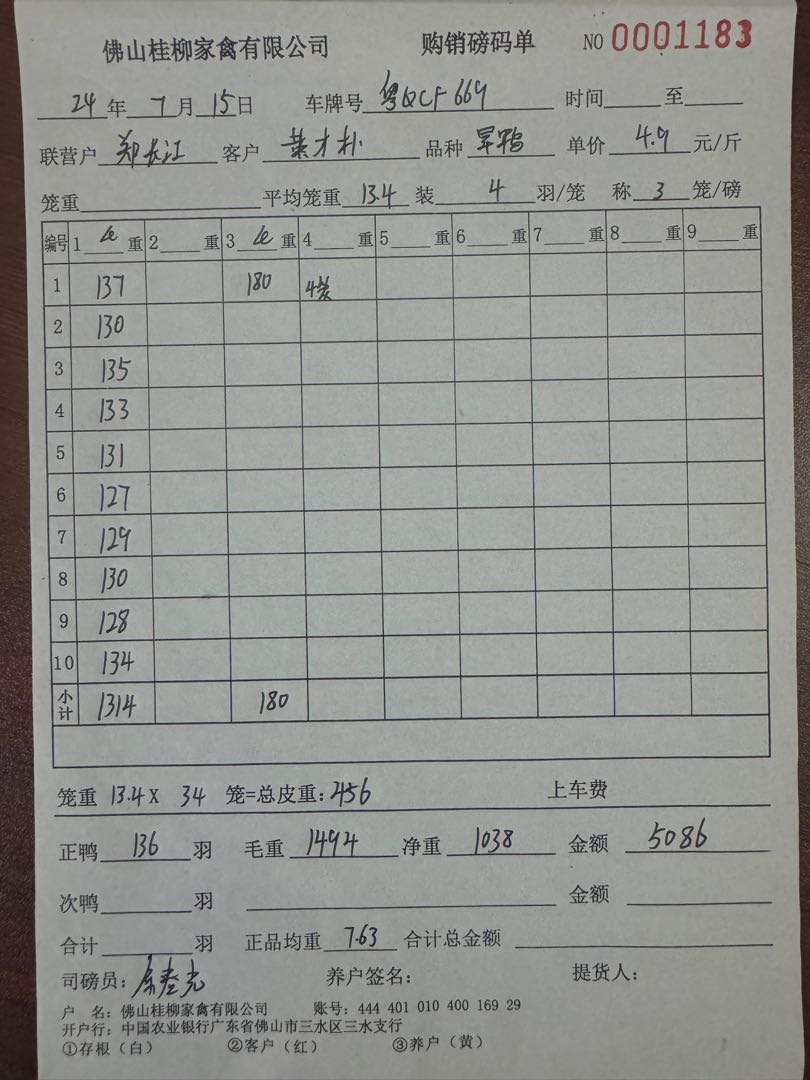 佛山桂柳家禽有限公司 购销磅码单 NO 0001183
24年 7月 15日 车牌号 粤QCF669 时间 至
联营户 郑长江 客户 叶才朴 品种 旱鸭 单价 4.9 元/斤
笼重 平均笼重 13.4 装 4 羽/笼 称 3 笼/磅
编号 1 重 2 重 3 重 4 重 5 重 6 重 7 重 8 重 9 重
1 137 180 4笼
2 130
3 135
4 133
5 131
6 127
7 129
8 130
9 128
10 134
小计 1314 180
笼重 13.4 X 34 笼=总皮重: 456 上车费
正鸭 136 羽 毛重 1494 净重 1038 金额 5086
次鸭 羽 金额
合计 羽 正品均重 7.63 合计总金额
司磅员: 养户签名: 提货人:
户 名: 佛山桂柳家禽有限公司 账号: 444 401 010 400 169 29
开户行: 中国农业银行广东省佛山市三水区三水支行
①存根(白) ②客户(红) ③养户(黄)